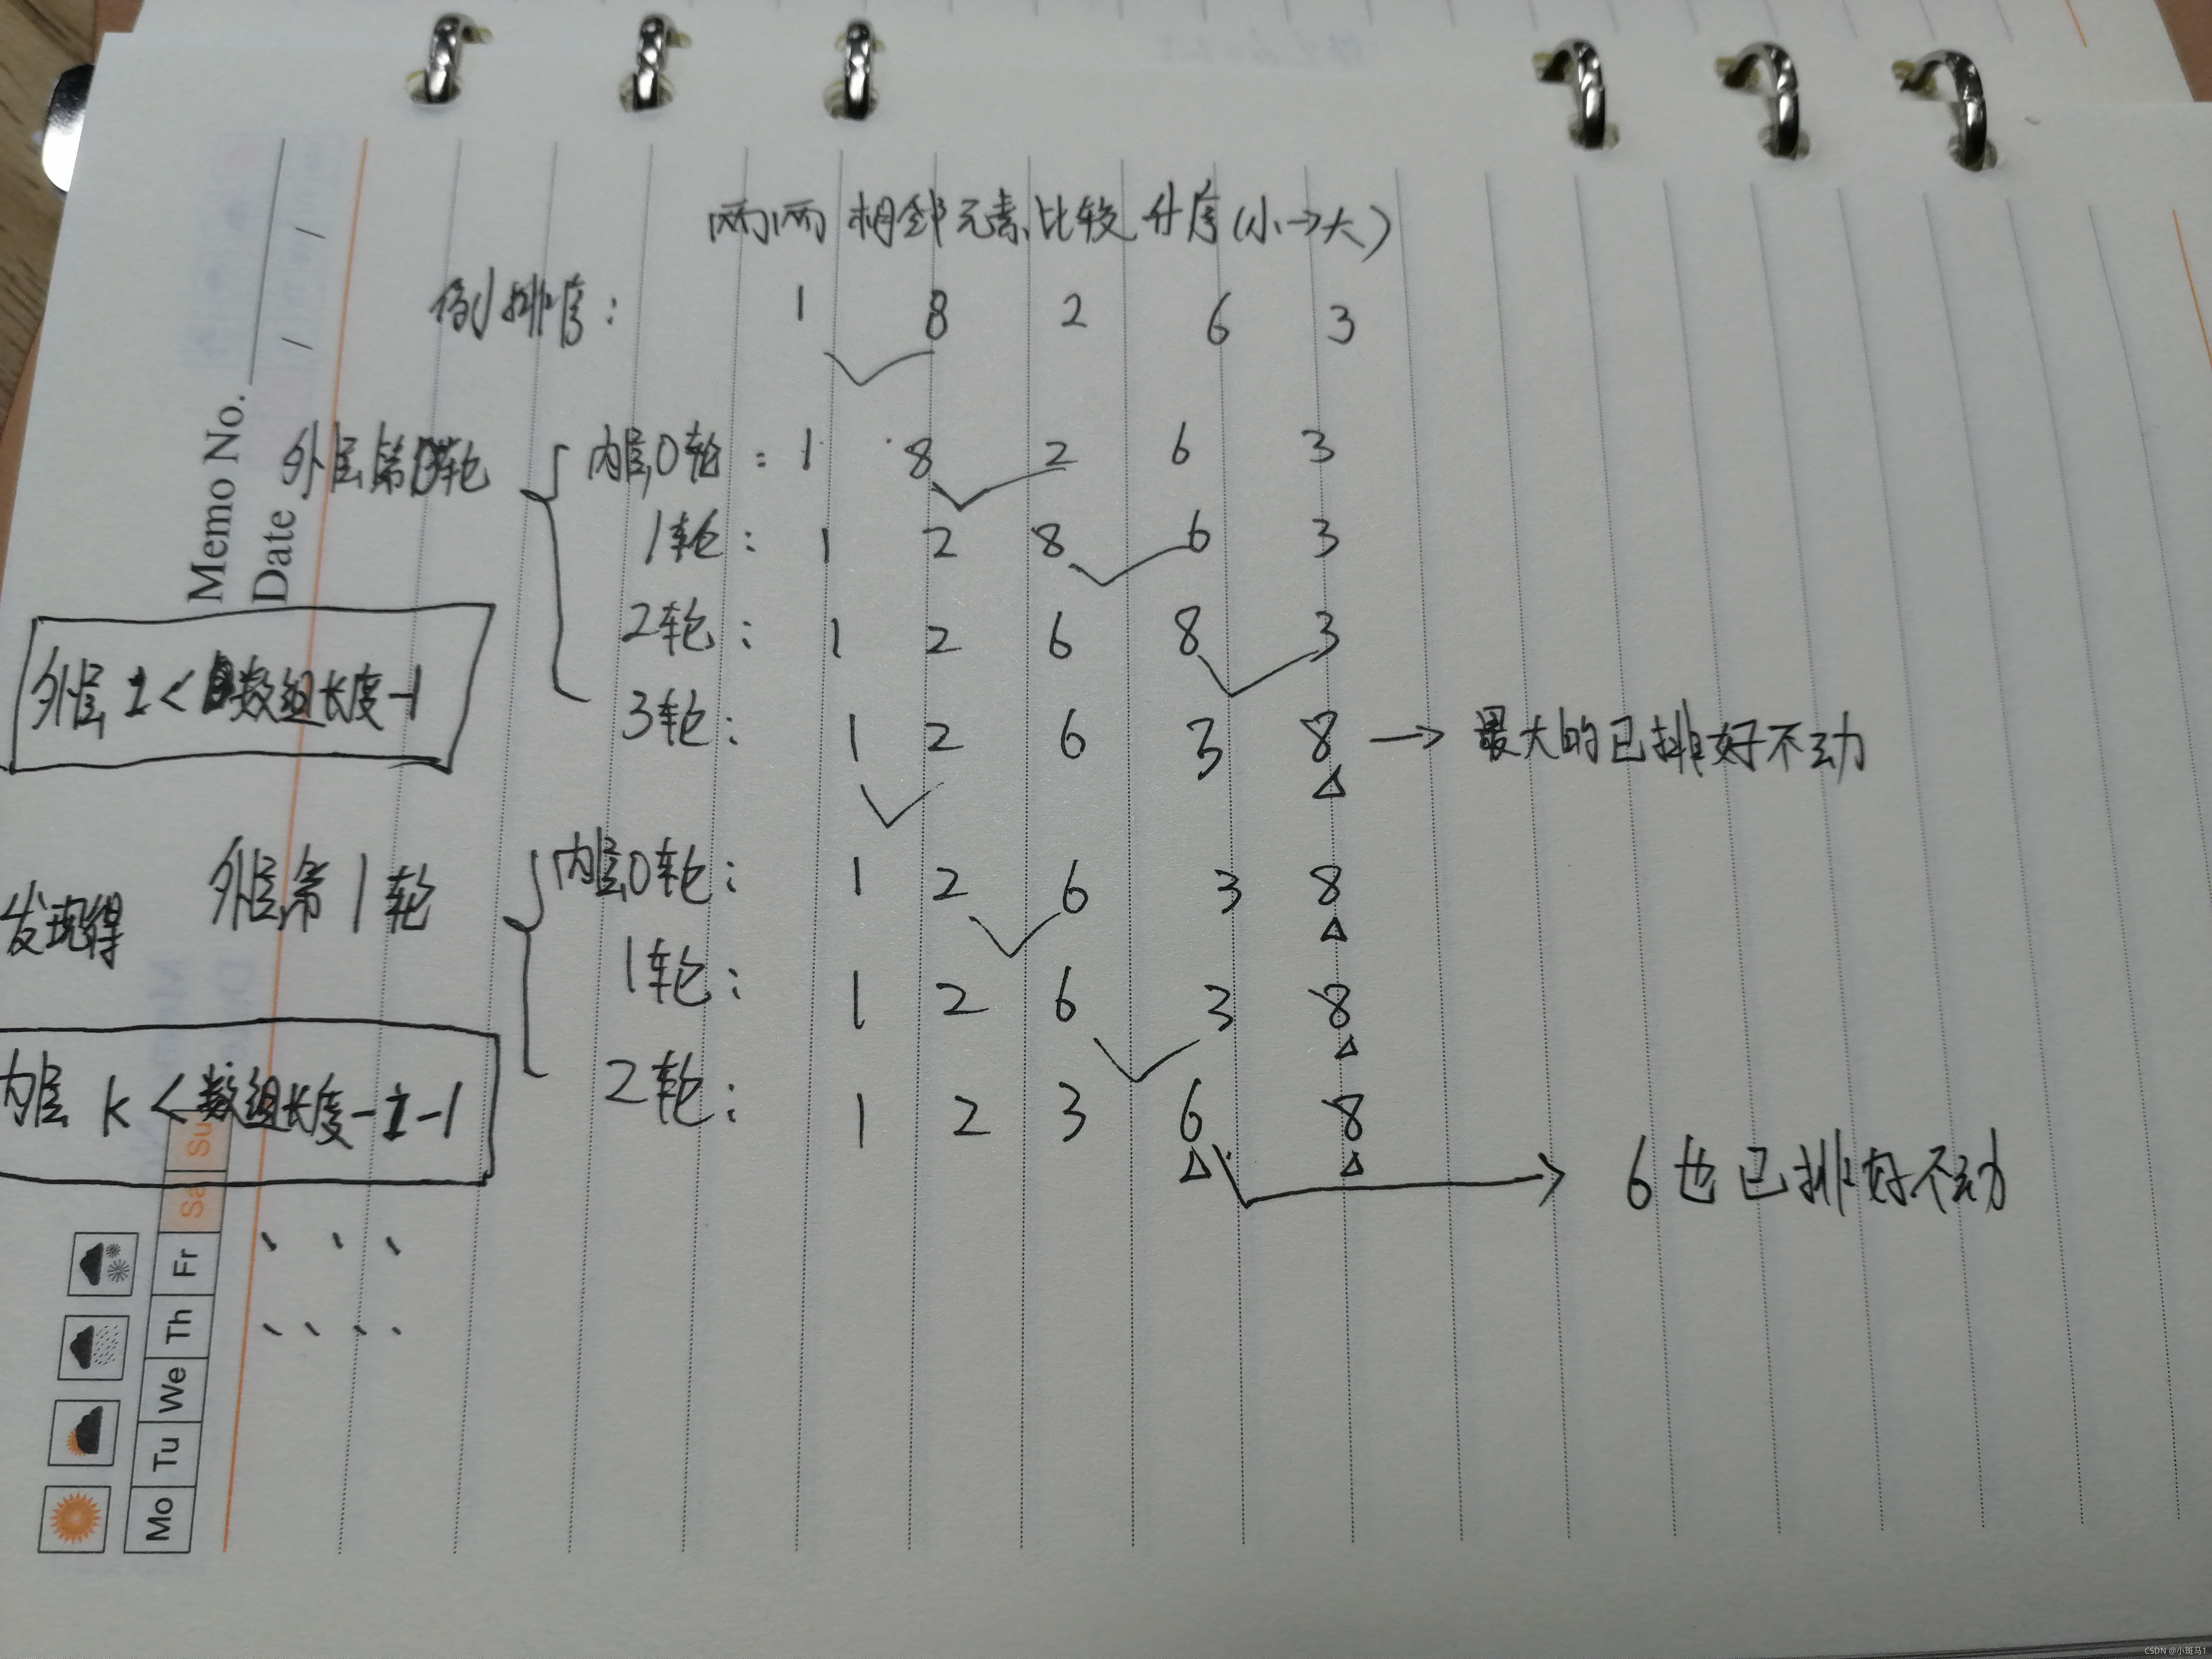 两两相邻元素比较升序(小→大)
例排序: 1 8 2 6 3
外层第0轮 内层0轮: 1 8 2 6 3
1轮: 1 2 8 6 3
2轮: 1 2 6 8 3
外层 i < 数组长度-1
3轮: 1 2 6 3 8 → 最大的已排好不动
发现得
外层第1轮 内层0轮: 1 2 6 3 8
1轮: 1 2 6 3 8
内层 k < 数组长度-i-1
2轮: 1 2 3 6 8 → 6也已排好不动
Memo No.
Date / /
Mo Tu We Th Fr Sa Su
CSDN @小斑马1